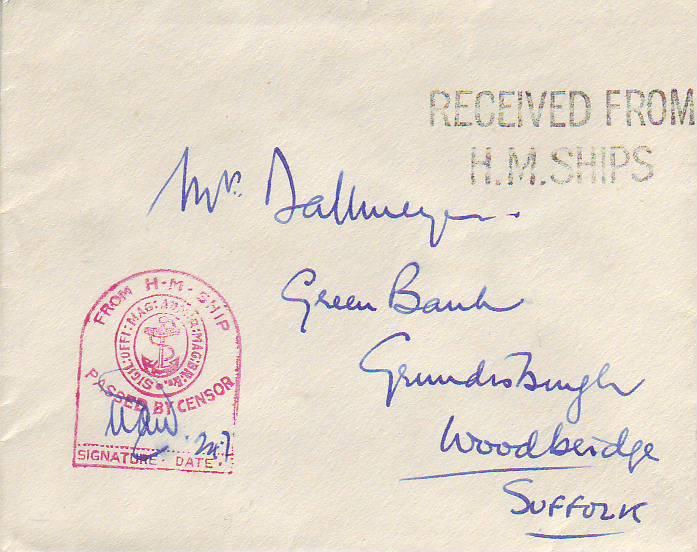 RECEIVED FROM
H.M.SHIPS
Mrs Dallmeyer.
Green Bank
Grundisburgh
Woodbridge
SUFFOLK
FROM H-M-SHIP
SIGIL:OFFI:MAG:ADMIR:MAG:BR:
PASSED BY CENSOR
SIGNATURE. DATE.